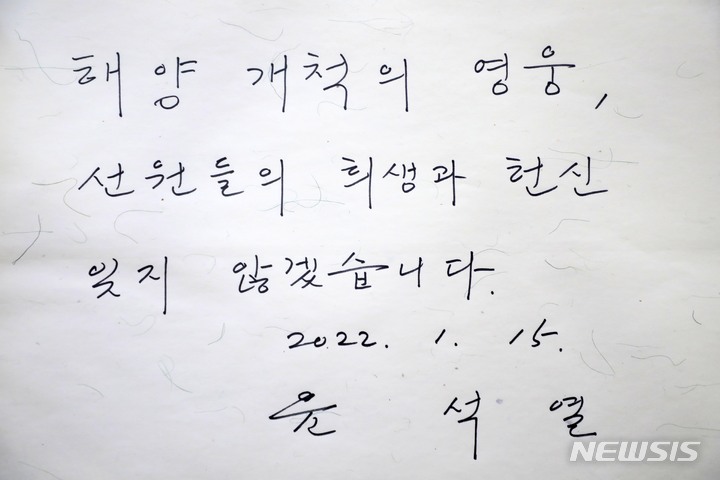 해양 개척의 영웅,
선원들의 희생과 헌신
잊지 않겠습니다.
2022. 1. 15.
윤 석 열
NEWSIS